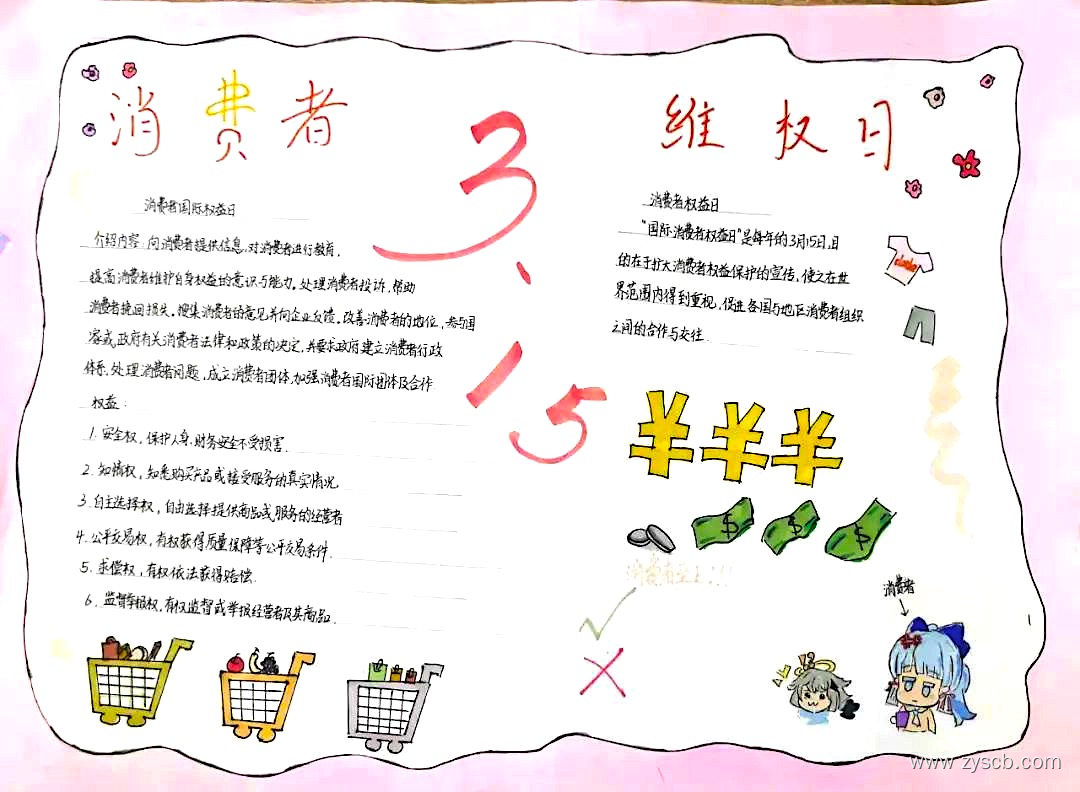 消费者
3、15
维权日
消费者国际权益日
介绍内容:向消费者提供信息,对消费者进行教育,
提高消费者维护自身权益的意识与能力,处理消费者投诉,帮助
消费者挽回损失,搜集消费者的意见并向企业反馈,改善消费者的地位,参与国
家或政府有关消费者法律和政策的决定,并要求政府建立消费者行政
体系,处理消费者问题,成立消费者团体,加强消费者国际团体及合作
权益:
1.安全权,保护人身、财务安全不受损害.
2.知情权,知悉购买产品或接受服务的真实情况
3.自主选择权,自由选择提供商品或服务的经营者
4.公平交易权,有权获得质量保障等公平交易条件.
5.求偿权,有权依法获得赔偿.
6.监督举报权,有权监督或举报经营者及其商品.
消费者权益日
"国际消费者权益日"是每年的3月15日,目
的在于扩大消费者权益保护的宣传,使之在世
界范围内得到重视,促进各国与地区消费者组织
之间的合作与交往.
¥¥¥
$ $ $
消费者至上!!!
消费者
www.zyscb.com